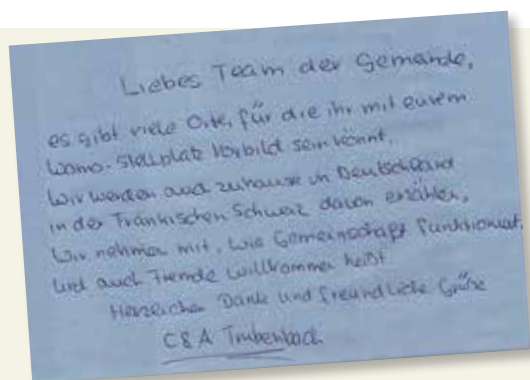 Liebes Team der Gemeinde,
es gibt viele Orte, für die ihr mit eurem
Womo-Stellplatz Vorbild sein könnt.
Wir werden auch zuhause in Deutschland
in der Fränkischen Schweiz davon erzählen,
Wir nehmen mit, wie Gemeinschaft funktioniert,
und auch Fremde willkommen heißt
Herzlichen Dank und freundliche Grüße
C & A